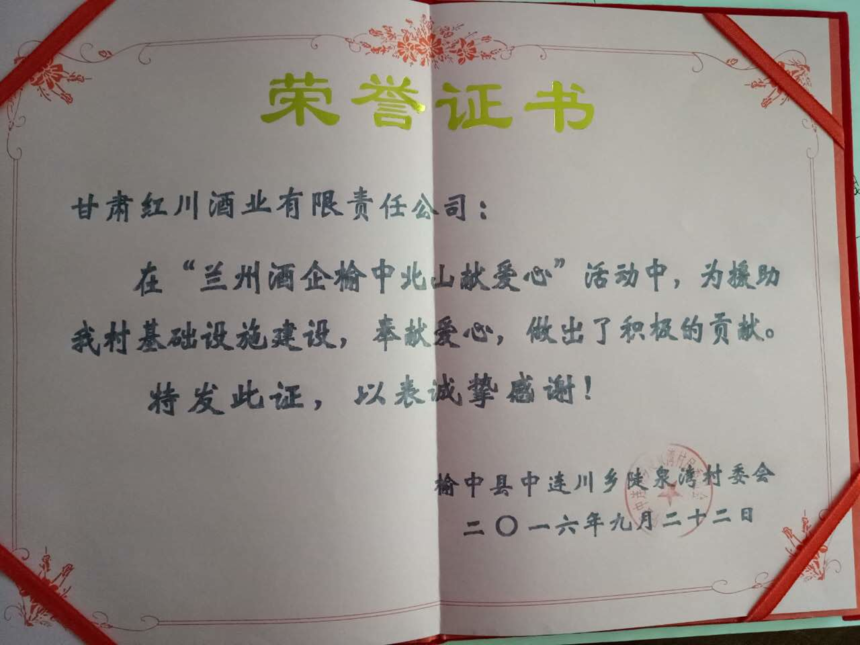 荣誉证书
甘肃红川酒业有限责任公司：
在“兰州酒企榆中北山献爱心”活动中，为援助
我村基础设施建设，奉献爱心，做出了积极的贡献。
特发此证，以表诚挚感谢！
榆中县中连川乡陡泉湾村委会
二〇一六年九月二十二日